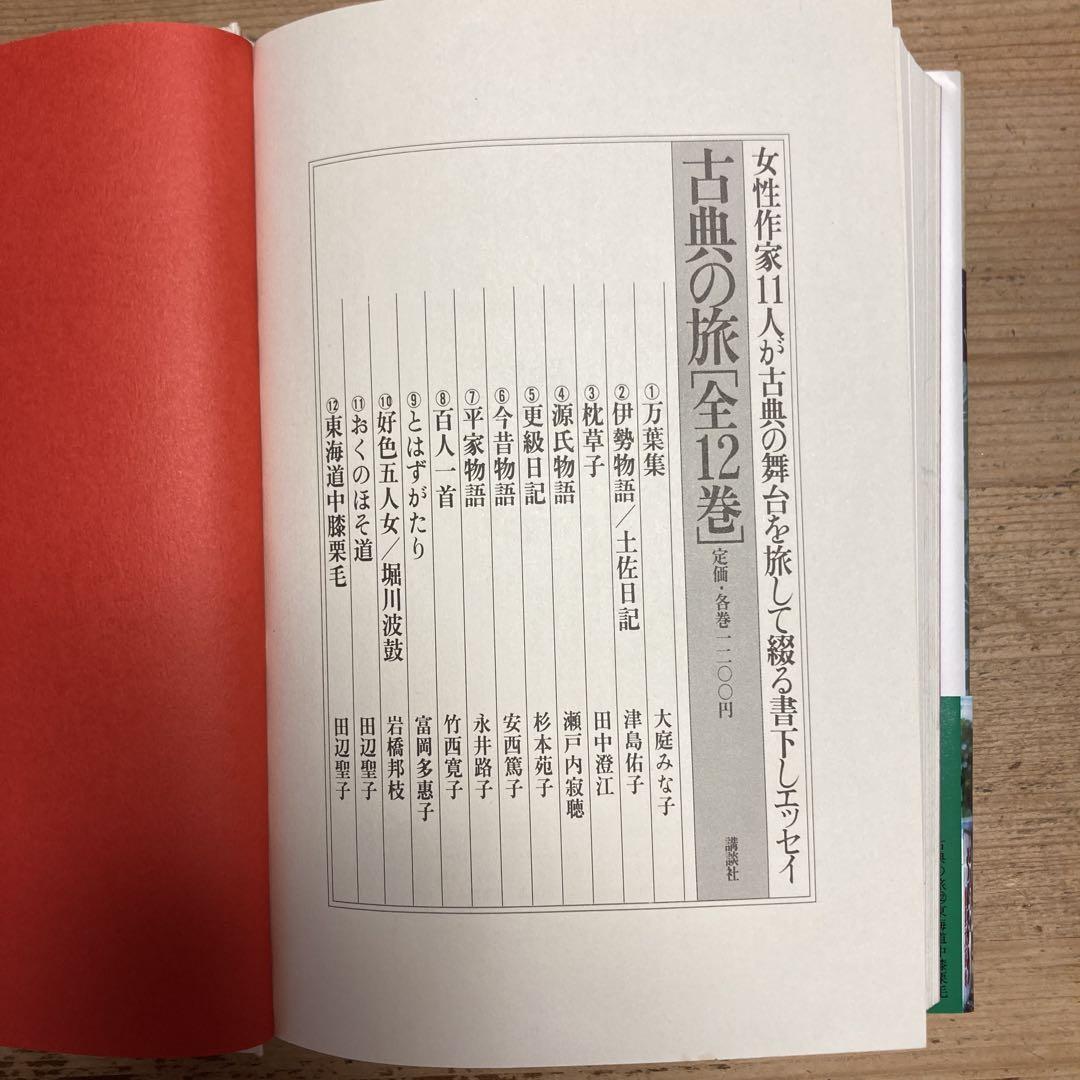 女性作家11人が古典の舞台を旅して綴る書下しエッセイ
古典の旅[全12巻]
定価・各巻一二〇〇円
講談社
①万葉集 大庭みな子
②伊勢物語/土佐日記 津島佑子
③枕草子 田中澄江
④源氏物語 瀬戸内寂聴
⑤更級日記 杉本苑子
⑥今昔物語 安西篤子
⑦平家物語 永井路子
⑧百人一首 竹西寛子
⑨とはずがたり 富岡多惠子
⑩好色五人女/堀川波鼓 岩橋邦枝
⑪おくのほそ道 田辺聖子
⑫東海道中膝栗毛 田辺聖子
古典の旅⑫東海道中膝栗毛